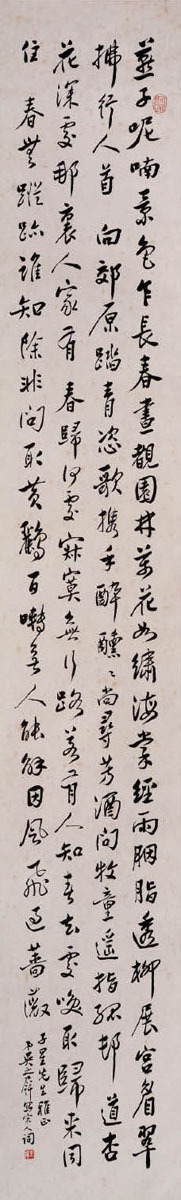 燕子呢喃景色乍長春晝覩園林萬花如繡海棠經雨胭脂透柳展宮眉翠
拂行人首 向郊原踏青恣歌攜手醉醺〻尚尋芳酒問牧童遥指孤邨 道杏
花深處那裏人家有 春歸何處寂寞無行路若有人知春去處喚取歸來同
住 春無蹤跡誰知除非問取黄鸝百囀無人能解因風飛過薔薇
子星先生雅正